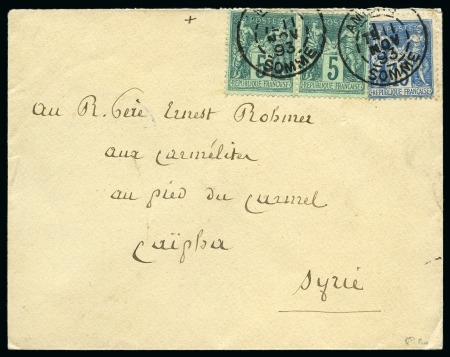 POSTES
11 NOV 93
SOMME
5
5
REPUBLIQUE FRANÇAISE
REPUBLIQUE FRANÇAISE
REPUBLIQUE FRANÇAISE
11 NOV 93
SOMME
+
au R. Père Ernest Rohmer
aux carmélites
au pied du Carmel
Caïpha
Syrie